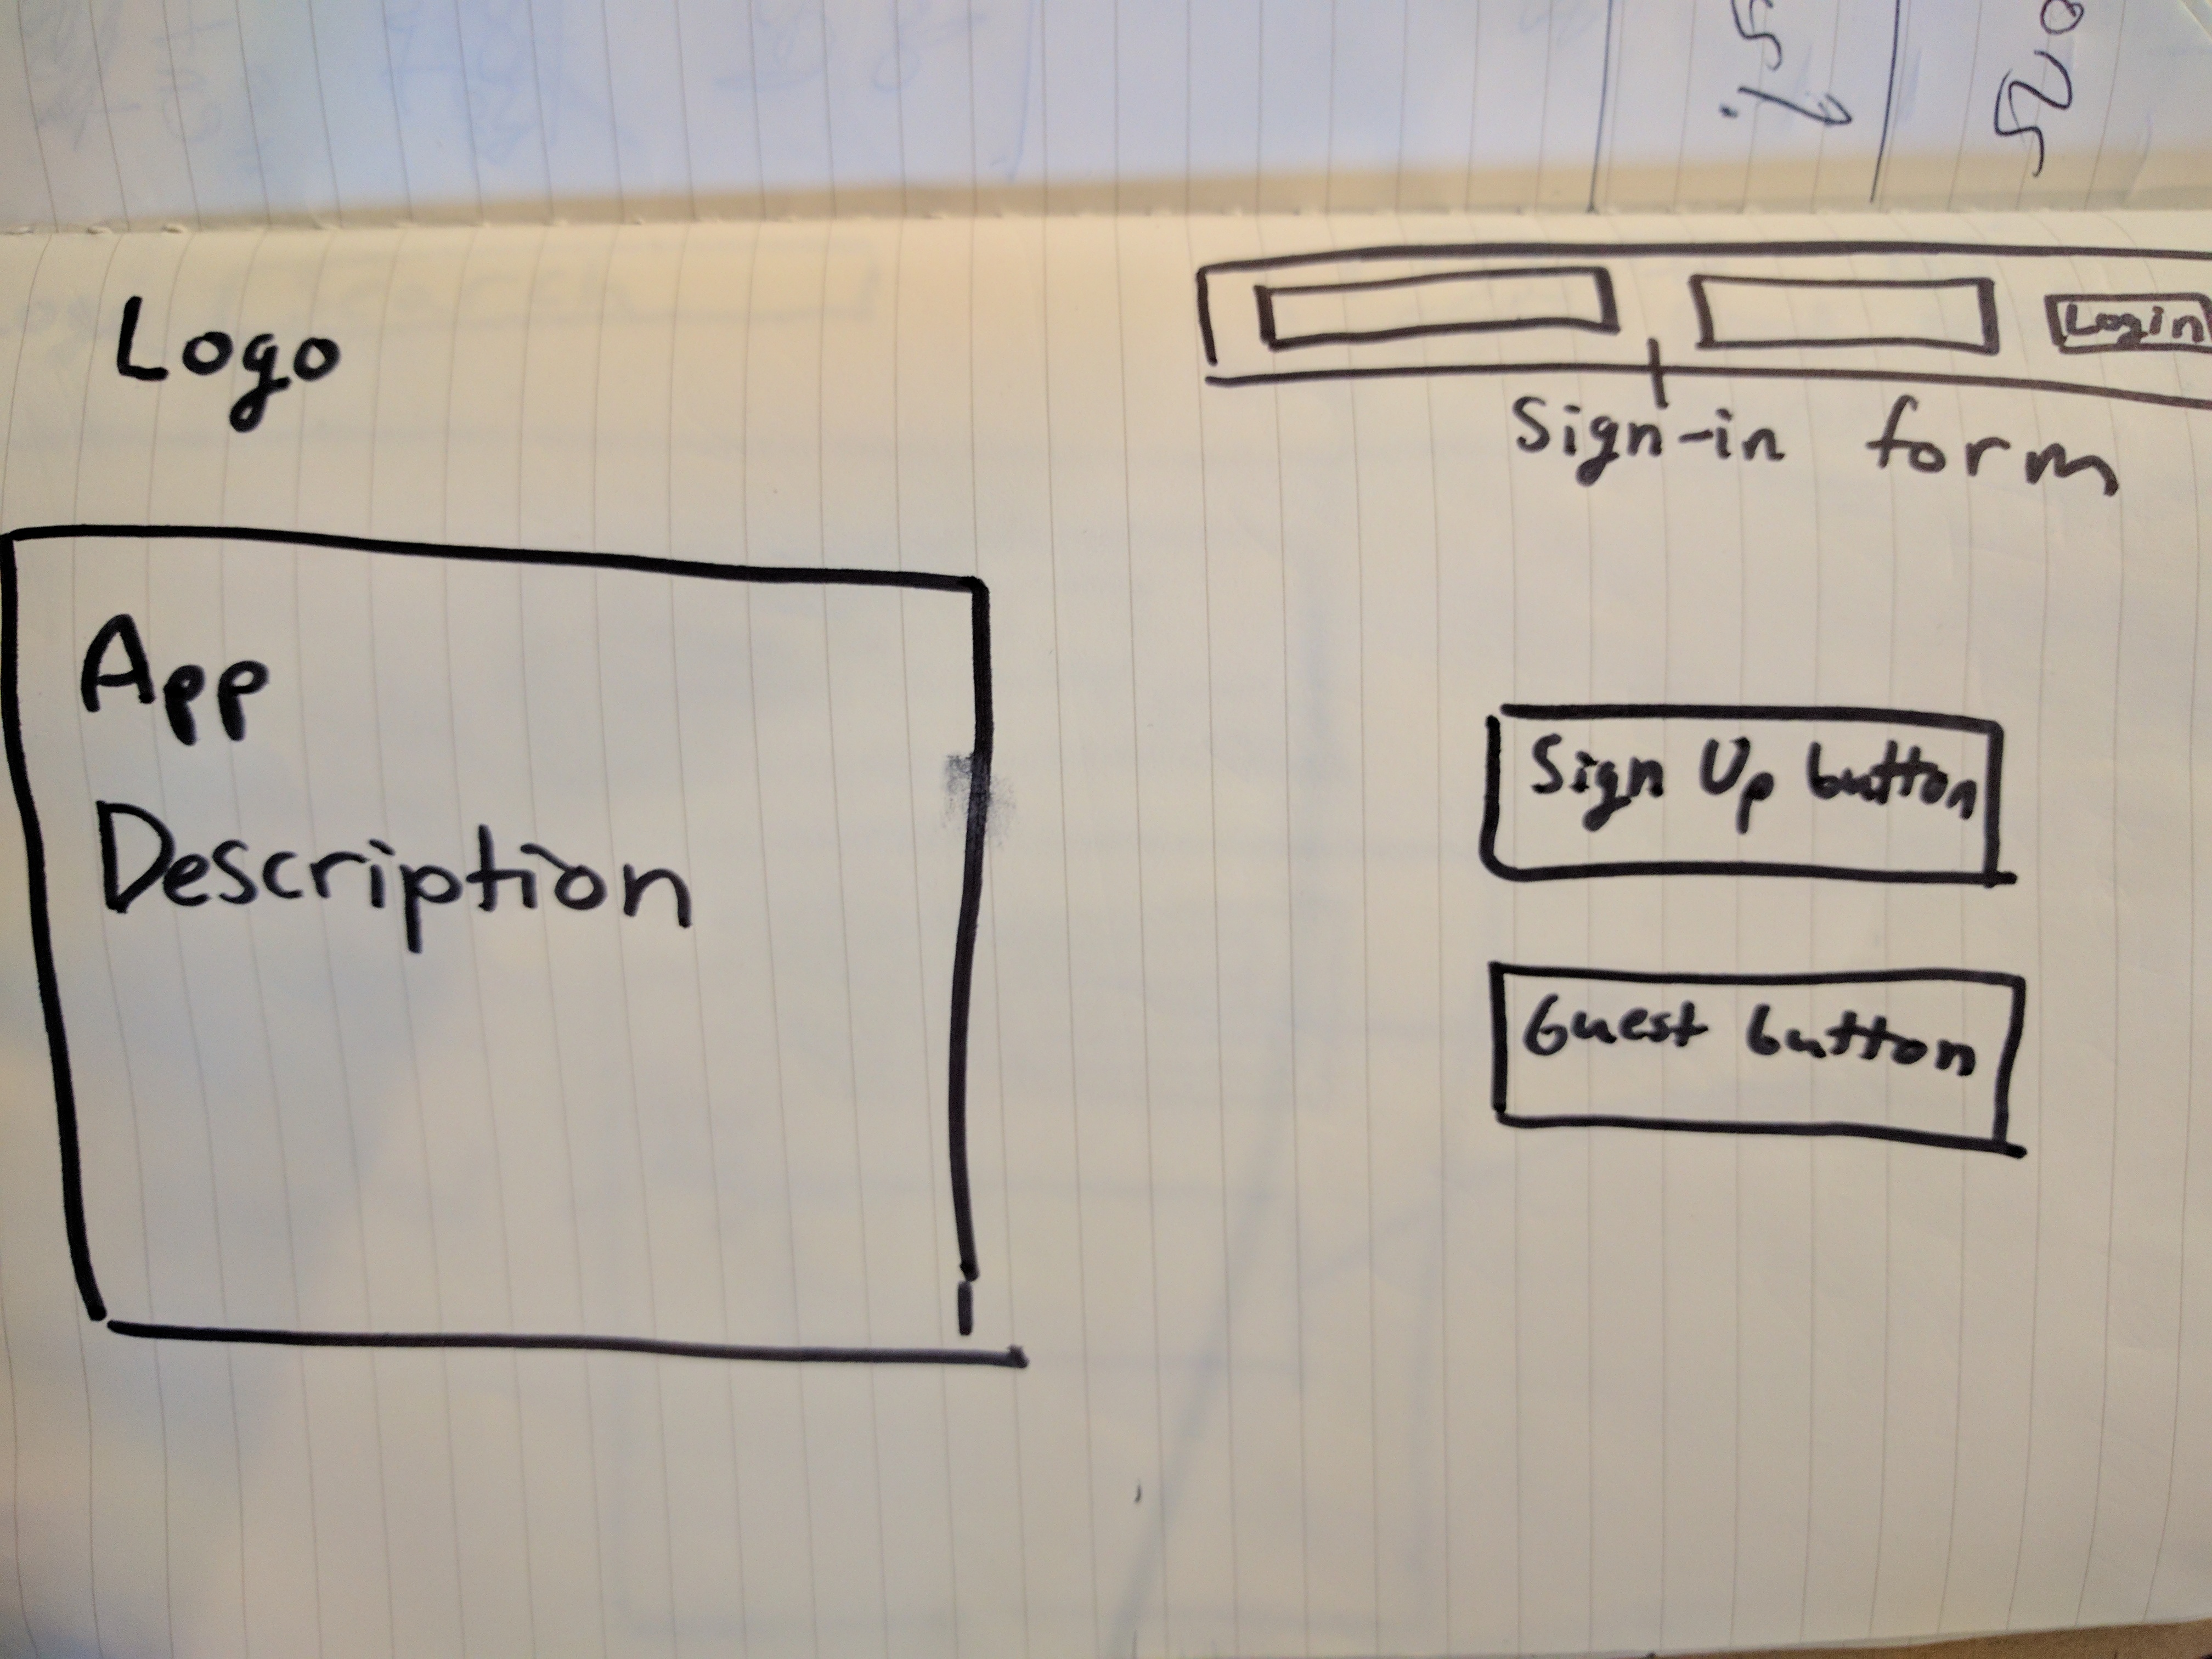 Logo
Login
Sign-in form
App
Description
Sign Up button
Guest button